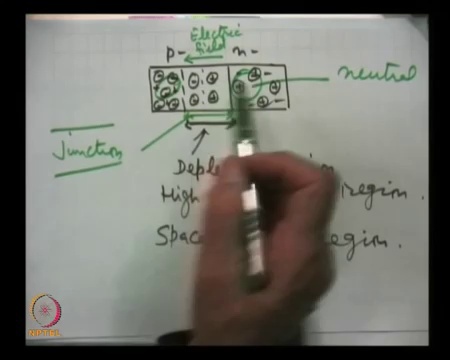 Electric
field
p- n-
neutral
Junction
Depl
High region.
Space egion.
NPTEL